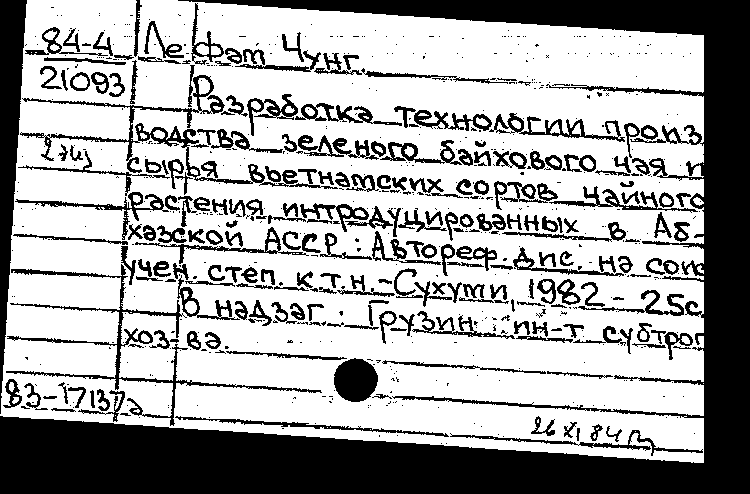 84-4 Ле Фат Чунг.
21093
Разработка технологии произ
2 экз водства зеленого байхового чая и
сырья вьетнамских сортов чайного
растения, интродуцированных в Аб-
хазской АССР. : Автореф. дис. на соис
учен. степ. к.т.н. - Сухуми, 1982 - 25с.
В надзаг. : Грузин. ин-т субтроп
хоз-ва.
83-17137а
26 XI 84